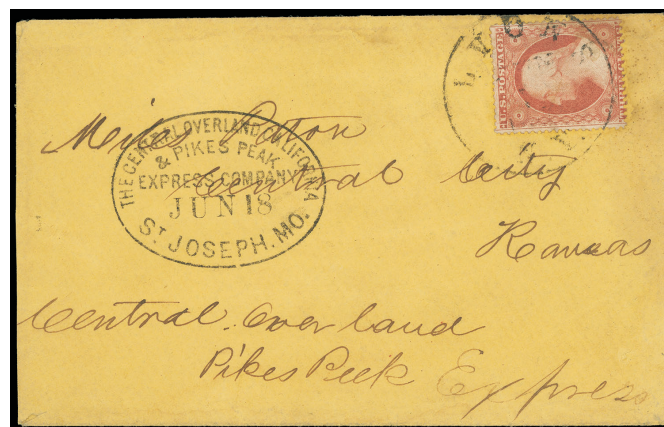 LYONS
U.S. POSTAGE
Miles Eaton
THE CENTRAL OVERLAND CALIFORNIA
& PIKES PEAK
EXPRESS COMPANY
JUN 18
ST JOSEPH. MO.
Central City
Kansas
Central Overland
Pikes Peek Express